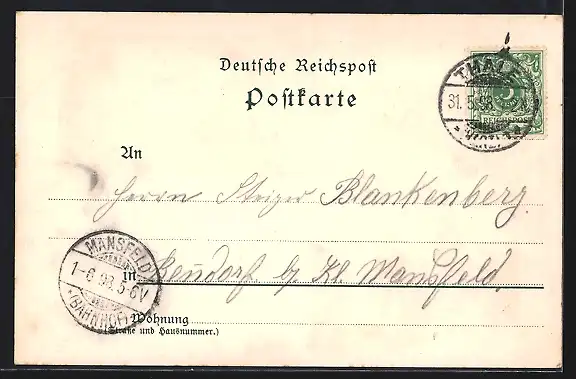 Deutsche Reichspost
Postkarte
THALE
31.5.98
5
REICHSPOST
An
Herrn Steiger Blankenberg
MANSFELD
1-6 98 5-6V
(BAHNHOF)
in Bendorf b/ Kl. Mansfeld,
Wohnung
(Straße und Hausnummer.)